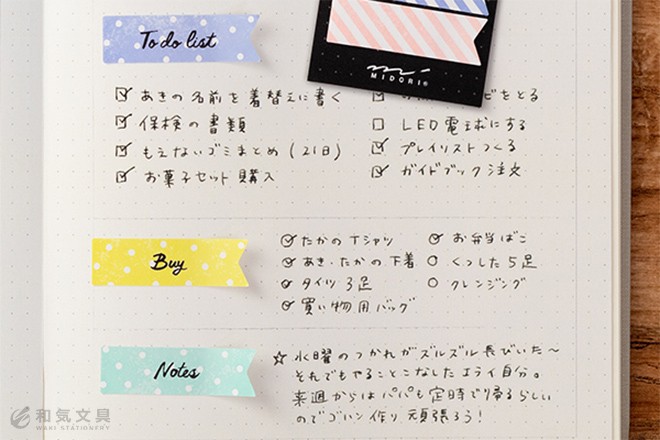 To do list
MIDORI®
あきの名前を着替えに書く
保検の書類
もえないゴミまとめ(21日)
お菓子セット購入
ビをとる
LED電球にする
プレイリストつくる
ガイドブック注文
Buy
たかのTシャツ
あき・たかの下着
タイツ3足
買い物用バッグ
お弁当ばこ
くつした5足
クレンジング
Notes
☆水曜のつかれがズルズル長びいた〜
それでもやることこなしたエライ自分。
来週からはパパも定時で帰るらしい
のでゴハン作り頑張ろう!
和気文具
WAKI STATIONERY